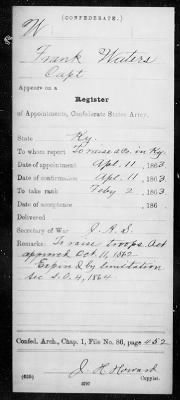 (CONFEDERATE.)
W
Frank Waters
Capt
Appears on a
Register
of Appointments, Confederate States Army.
State Ky.
To whom report To raise a Co. in Ky.
Date of appointment Apl. 11, 1863
Date of confirmation Apl. 11, 1863
To take rank Feby 2, 1863
Date of acceptance , 186
Delivered
Secretary of War J. A. S.
Remarks: To raise troops. Act
approved Oct. 11, 1862
Expired by limitation
see S.O. 4, 1864
Confed. Arch., Chap. 1, File No. 86, page 452
J. H. Howard
Copyist.